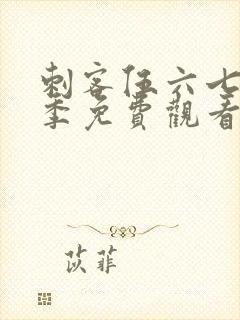 刺客伍六七
季免費觀看
苡菲